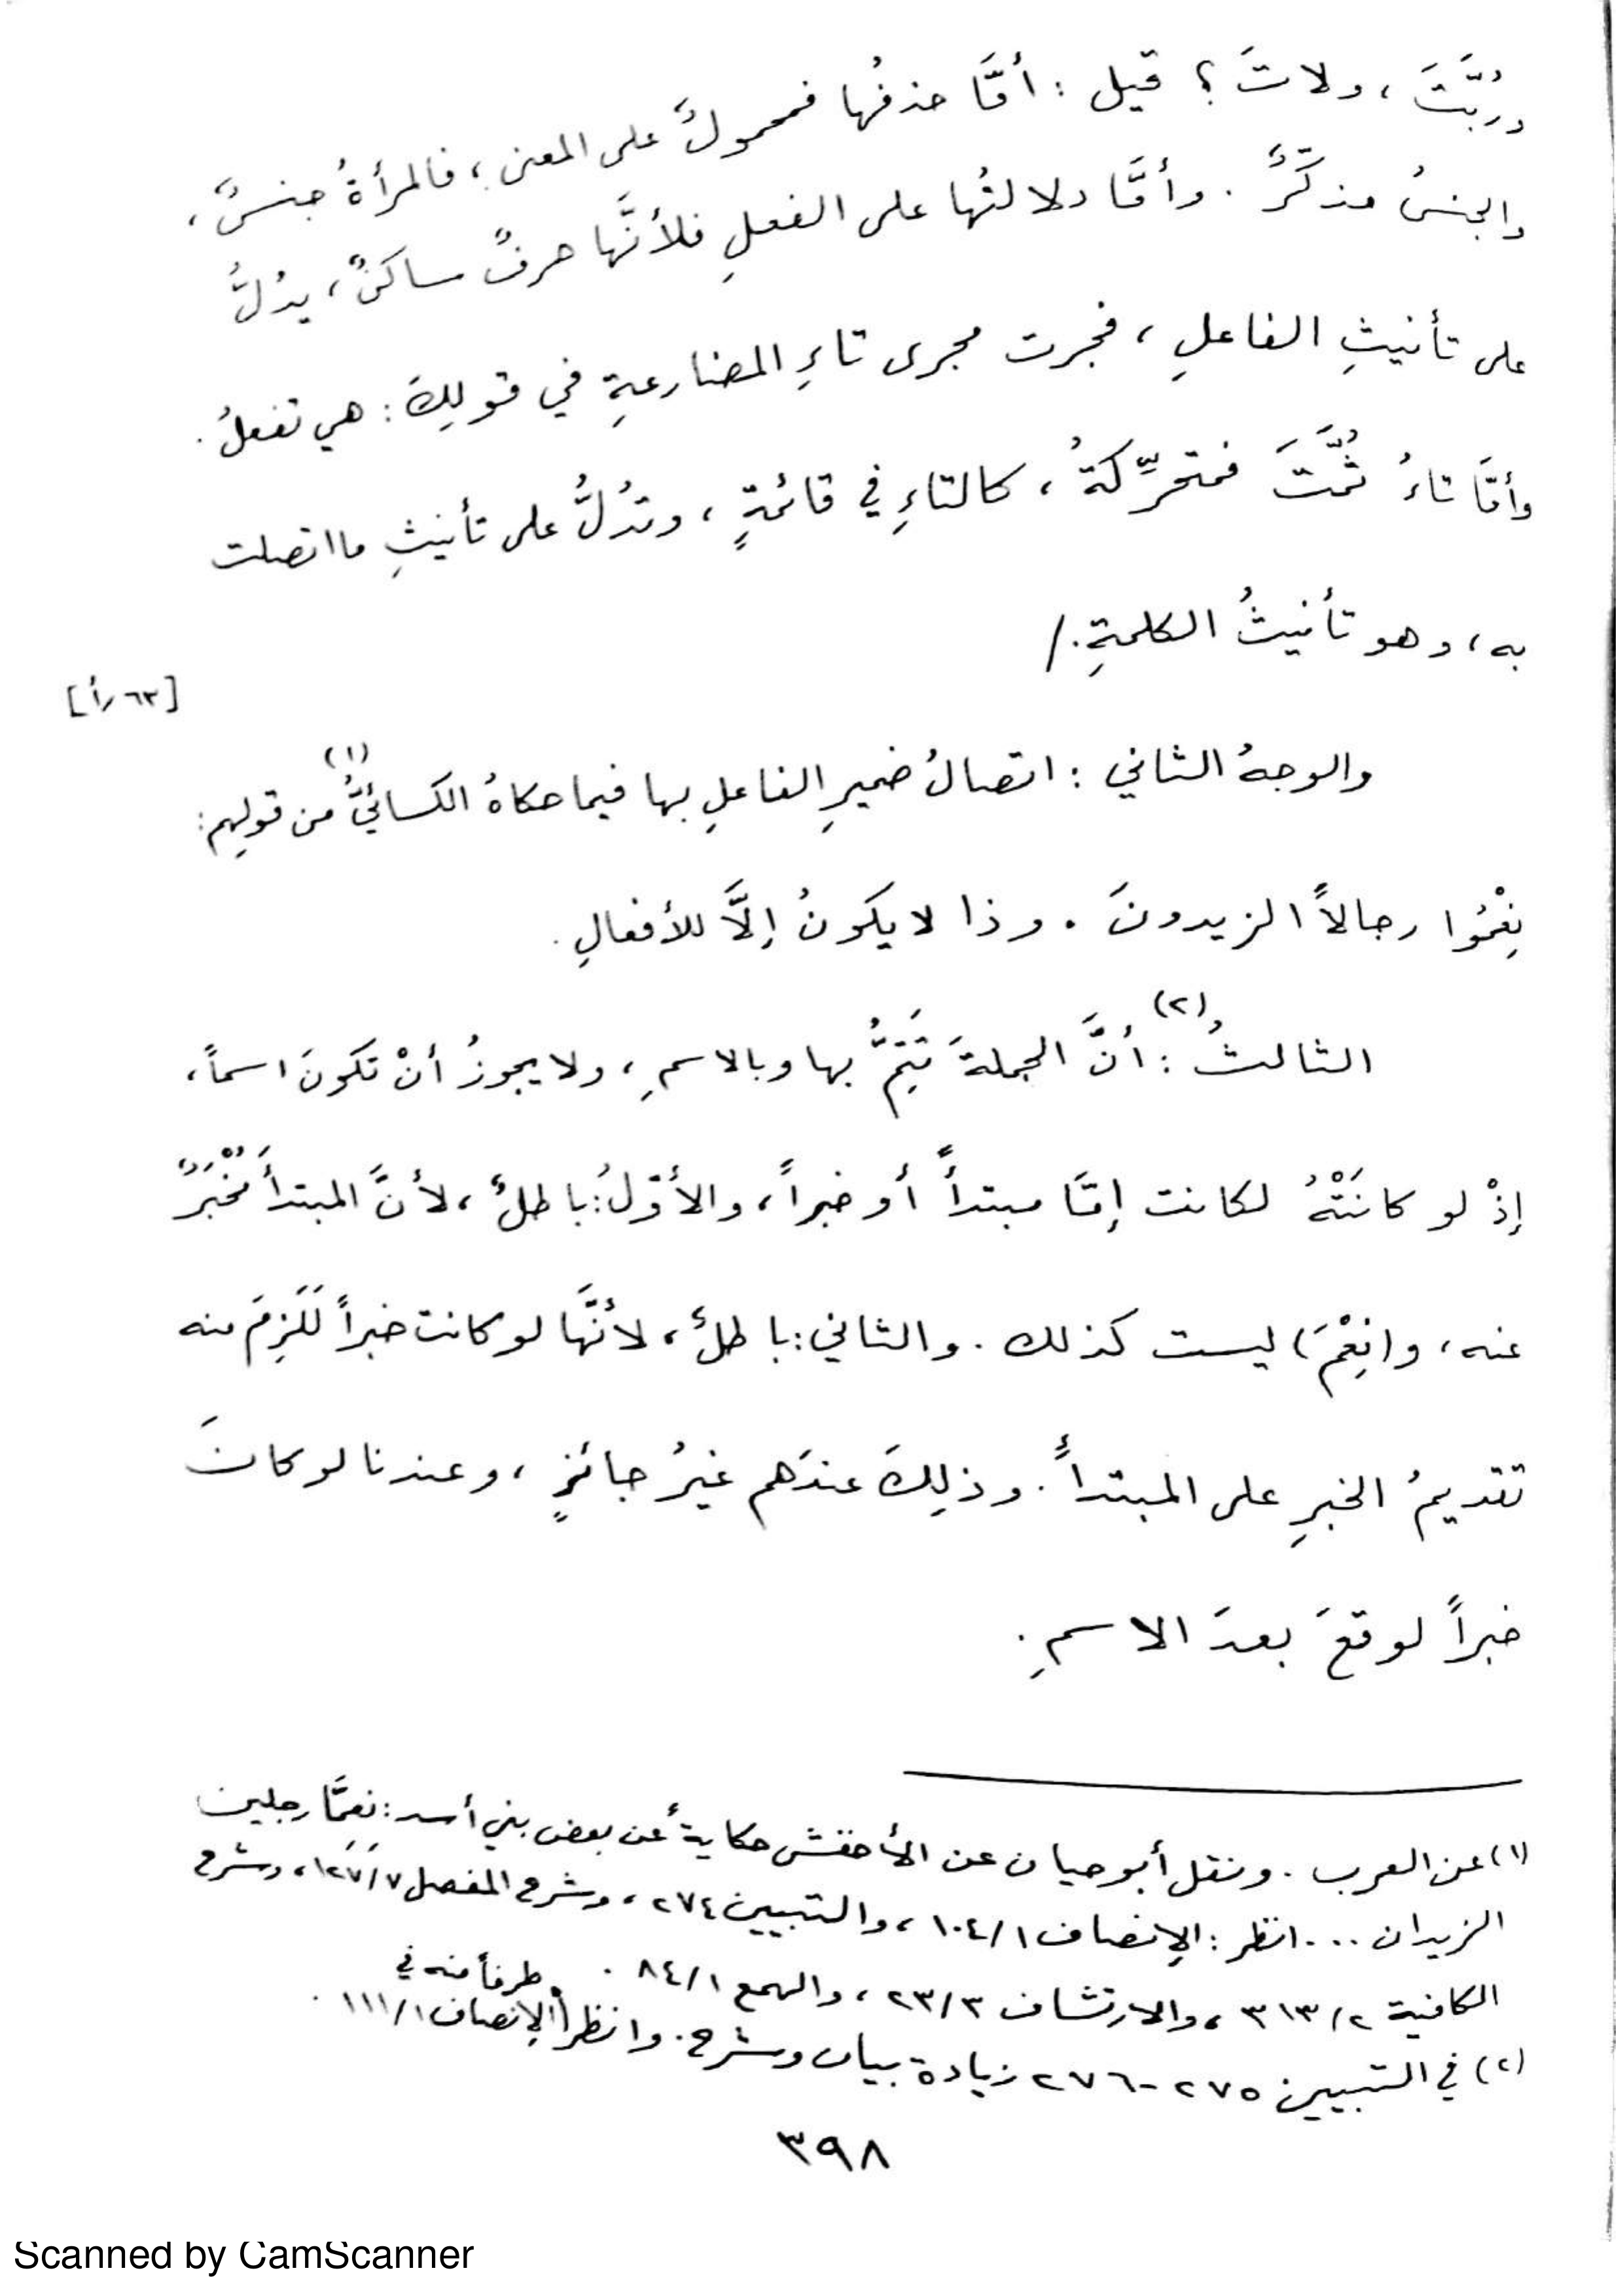 ورُبَّتَ، ولاتَ؟ قيل: أمَّا حذفُها فمحمولٌ على المعنى، فالمرأةُ جنسٌ،
والجنسُ مذكَّرٌ. وأمَّا دلالتُها على الفعلِ فلأنَّها حرفٌ ساكنٌ، يدُلُّ
على تأنيثِ الفاعلِ، فجرت مجرى تاءِ المضارعةِ في قولِكَ: هي تفعلُ.
وأمَّا تاءُ ثُمَّتَ فمتحرِّكةٌ، كالتاءِ في قائمةٍ، وتدُلُّ على تأنيثِ ما اتصلت
به، وهو تأنيثُ الكلمةِ./
[٦٣/أ]
والوجهُ الثاني: اتصالُ ضميرِ الفاعلِ بها فيما حكاهُ الكسائيُّ(١) من قولِهم:
نِعْمُوا رجالاً الزيدونَ. وذا لا يكونُ إلَّا للأفعالِ.
الثالثُ(٢): أنَّ الجملةَ تَتِمُّ بها وبالاسمِ، ولا يجوزُ أنْ تكونَ اسماً،
إذْ لو كانَتْهُ لكانت إمَّا مبتدأً أو خبراً، والأوّلُ: باطلٌ، لأنَّ المبتدأَ مُخْبَرٌ
عنه، و(نِعْمَ) ليست كذلك. والثاني: باطلٌ، لأنَّها لو كانت خبراً لَلَزِمَ منه
تقديمُ الخبرِ على المبتدأ. وذلِكَ عندَهم غيرُ جائزٍ، وعندنا لو كانَ
خبراً لوقعَ بعدَ الاسمِ.
(١) عن العرب. ونقل أبو حيان عن الأخفش حكايةً عن بعض بني أسد: نعمَّا رجلين
الزيدان... انظر: الإنصاف ١/١٠٤، والتبيين ٢٧٤، وشرح المفصل ٧/١٢٧، وشرح
الكافية ٢/٣١٣، والارتشاف ٣/٢٣، والهمع ١/٨٤.
(٢) في التبيين ٢٧٥-٢٧٦ زيادة بيان وشرح. وانظر طرفاً منه في الإنصاف ١/١١١.
٣٩٨
Scanned by CamScanner